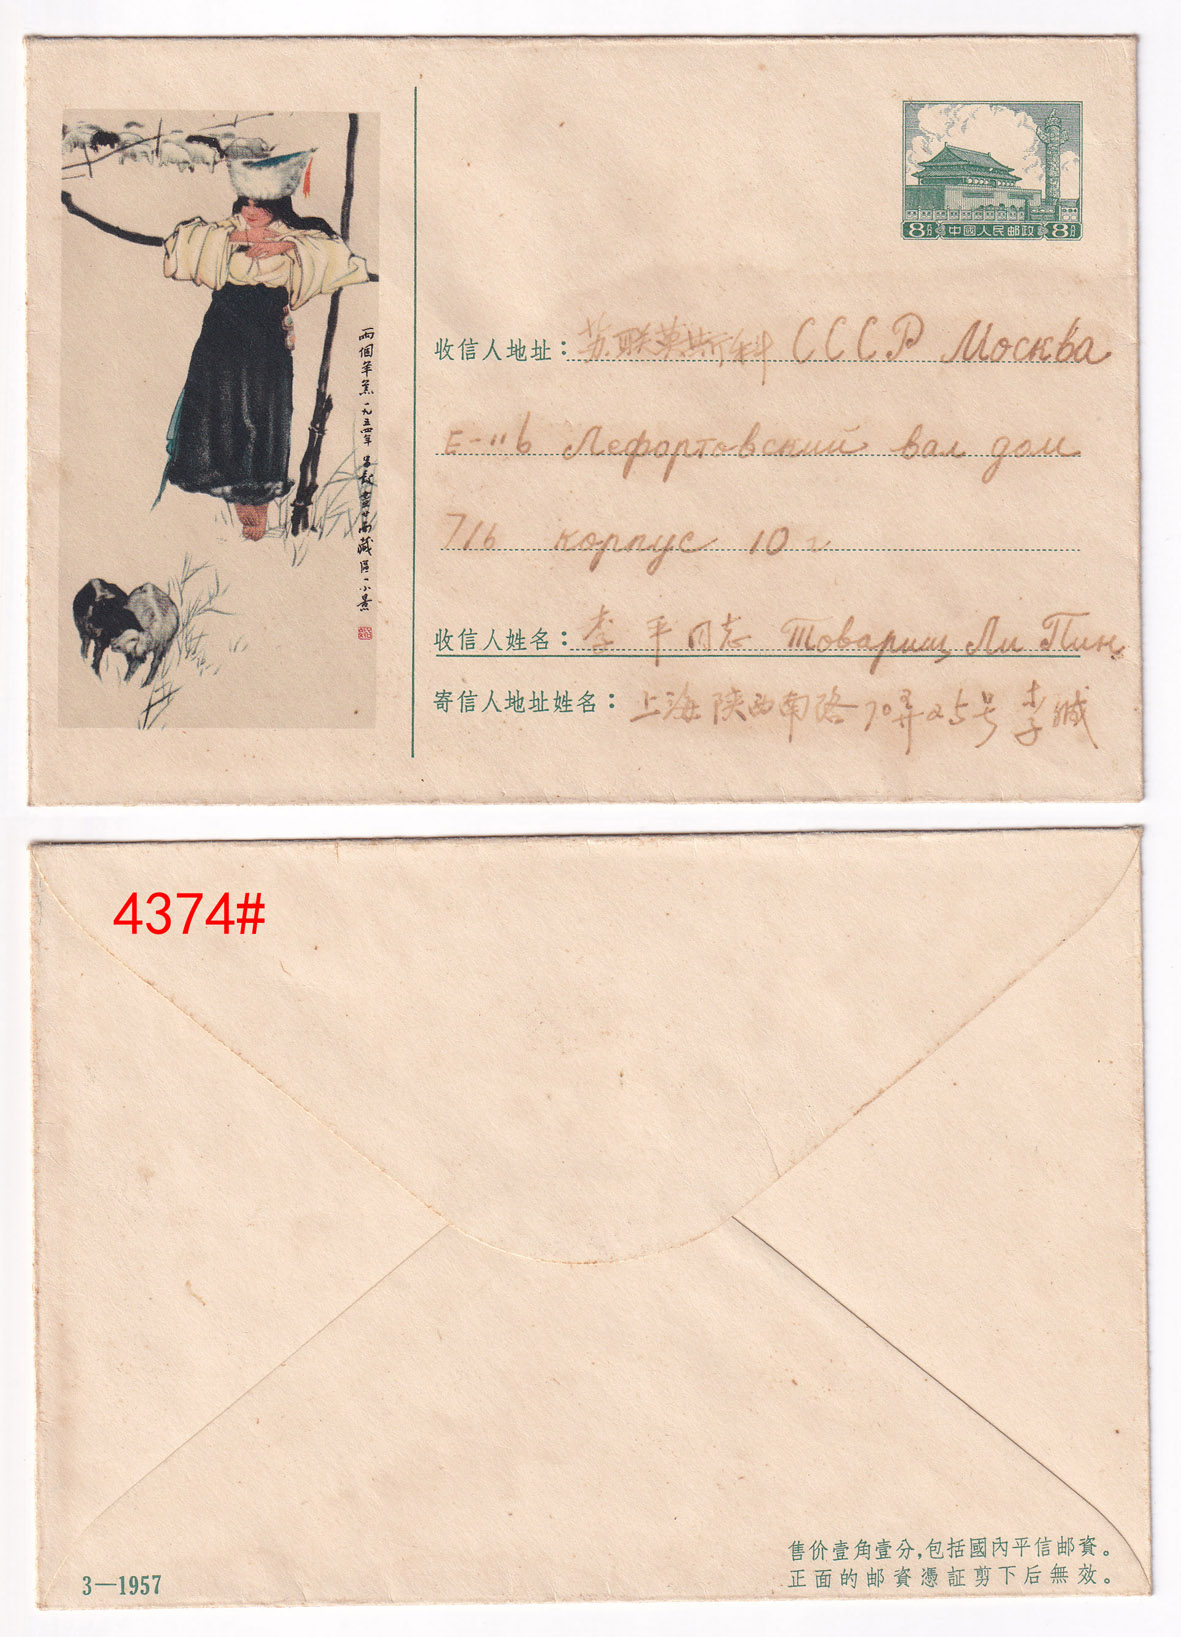 8分 中國人民邮政 8分
两個羊羔 一九五四年 黄胄 甘南藏區一小景
收信人地址：苏联莫斯科 СССР Москва
Е-116 Лефортовский вал дом
7/6 корпус 10 г
收信人姓名：李平同志 Товарищ Ли Пин
寄信人地址姓名：上海陕西南路70弄25号李缄
4374#
售价壹角壹分，包括國內平信邮資。
正面的邮資憑証剪下后無效。
3—1957